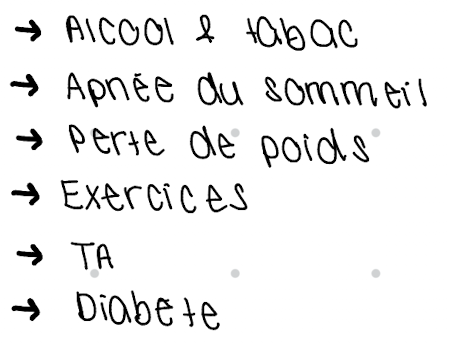 → Alcool & tabac
→ Apnée du sommeil
→ Perte de poids
→ Exercices
→ TA
→ Diabète